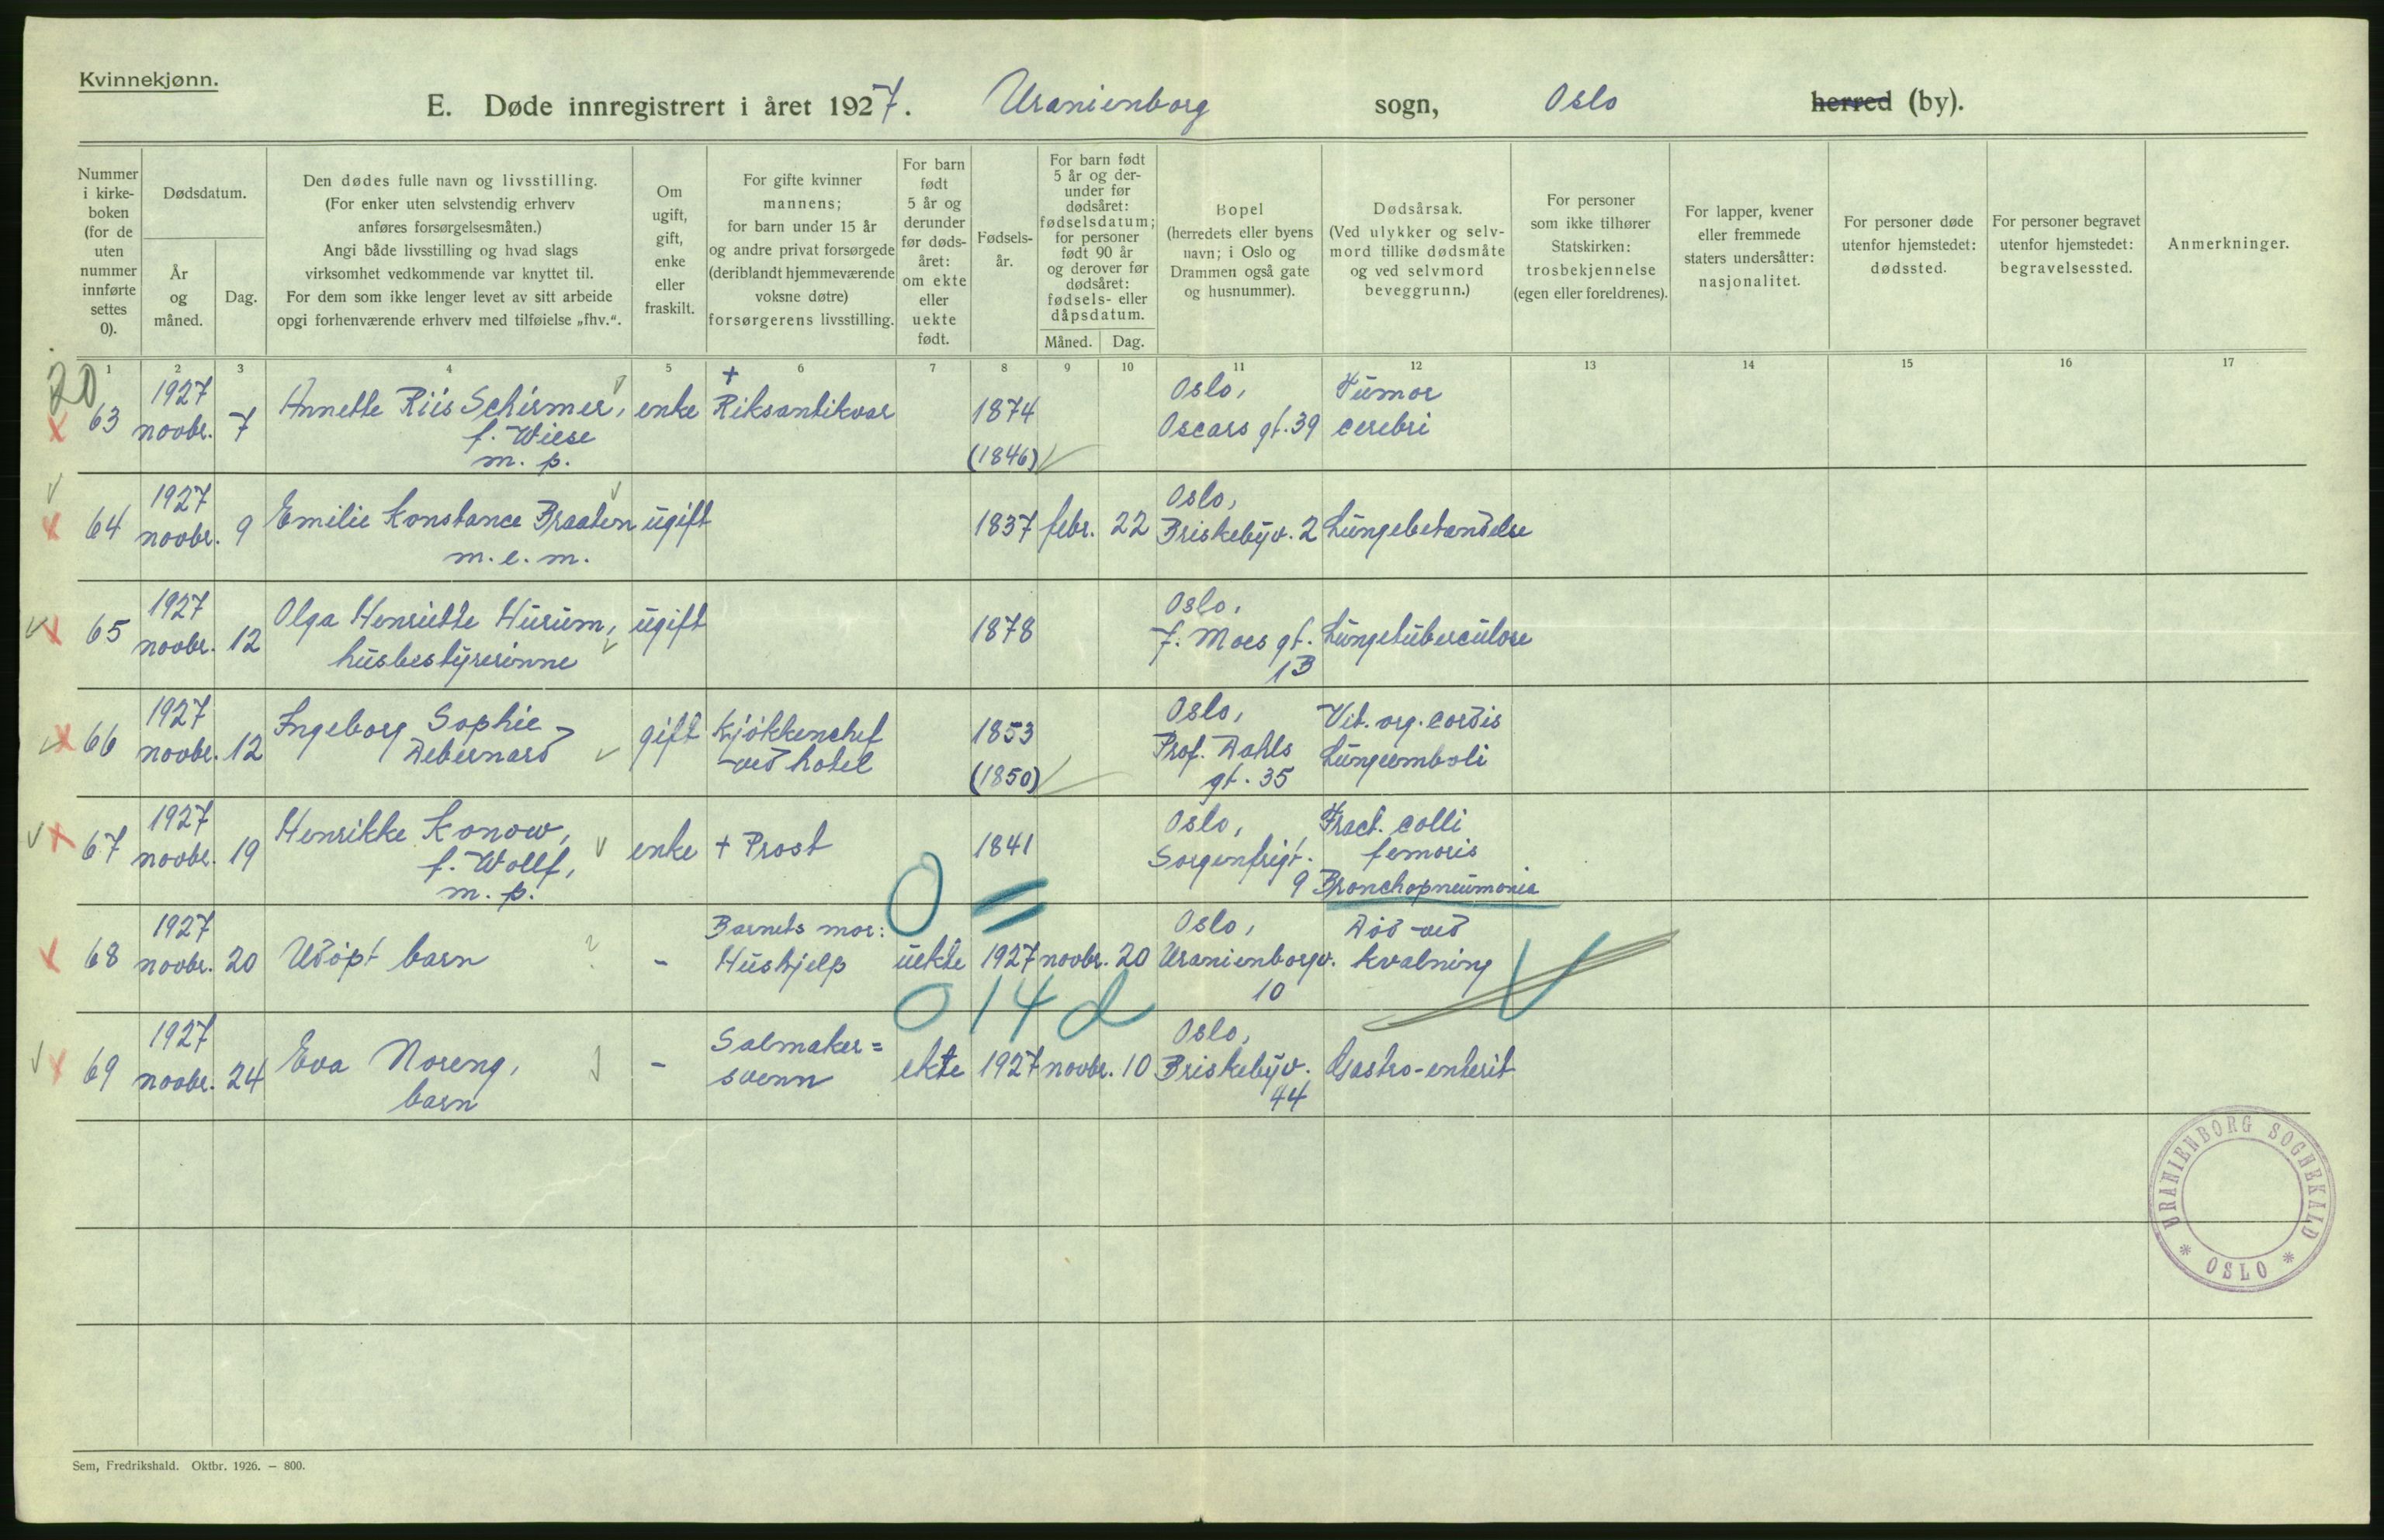 Kvinnekjønn.
E. Døde innregistrert i året 1927. Uranienborg sogn, Oslo herred (by).
Nummer i kirke-boken (for de uten nummer innførte settes 0).
Dødsdatum.
År og måned.
Dag.
Den dødes fulle navn og livsstilling.
(For enker uten selvstendig erhverv
anføres forsørgelsesmåten.)
Angi både livsstilling og hvad slags
virksomhet vedkommende var knyttet til.
For dem som ikke lenger levet av sitt arbeide
opgi forhenværende erhverv med tilføielse „fhv.“.
Om
ugift,
gift,
enke
eller
fraskilt.
For gifte kvinner
mannens;
for barn under 15 år
og andre privat forsørgede
(deriblandt hjemmeværende
voksne døtre)
forsørgerens livsstilling.
For barn
født
5 år og
derunder
før døds-
året:
om ekte
eller
uekte
født.
Fødsels-
år.
For barn født
5 år og der-
under før
dødsåret:
fødselsdatum;
for personer
født 90 år
og derover før
dødsåret:
fødsels- eller
dåpsdatum.
Måned. Dag.
Bopel
(herredets eller byens
navn; i Oslo og
Drammen også gate
og husnummer).
Dødsårsak.
(Ved ulykker og selv-
mord tillike dødsmåte
og ved selvmord
beveggrunn.)
For personer
som ikke tilhører
Statskirken:
trosbekjennelse
(egen eller foreldrenes).
For lapper, kvener
eller fremmede
staters undersåtter:
nasjonalitet.
For personer døde
utenfor hjemstedet:
dødssted.
For personer begravet
utenfor hjemstedet:
begravelsessted.
Anmerkninger.
1 2 3 4 5 6 7 8 9 10 11 12 13 14 15 16 17
20
1927 + Oslo, Tumor
63 novbr. 7 Annette Riis Schirmer, enke Riksantikvar 1874 Oscars gt. 39 cerebri
f. Wiese
m. p. (1846)
1927 Oslo,
64 novbr. 9 Emilie Konstance Braaten ugift 1837 febr. 22 Briskebyv. 2 Lungebetændelse
m. e. m.
1927 Oslo,
65 novbr. 12 Olga Henriette Hurum, ugift 1878 J. Moes gt. Lungetuberculose
husbestyrerinne 13
1927 Ingeborg Sophie Oslo, Vit. org. cordis
66 novbr. 12 Debernard gift kjøkkenchef 1853 Prof. Dahls Lungeemboli
ved hotel (1850) gt. 35
1927 Henrikke Konow, Oslo, Fract. colli
67 novbr. 19 f. Wollf, enke + Prost 1841 Sorgenfrigt. femoris
m. p. 9 Bronchopneumonia
0 =
1927 Barnets mor: Oslo, Død ved
68 novbr. 20 Udøpt barn ? - Hushjelp uekte 1927 novbr. 20 Uranienborgv. kvalning
10
014 d
1927 Salmaker= Oslo,
69 novbr. 24 Eva Noreng, - svenn ekte 1927 novbr. 10 Briskebyv. Gastro-enterit
barn 44
URANIENBORG SOGNEKALD
* OSLO *
Sem, Fredrikshald. Oktbr. 1926. — 800.